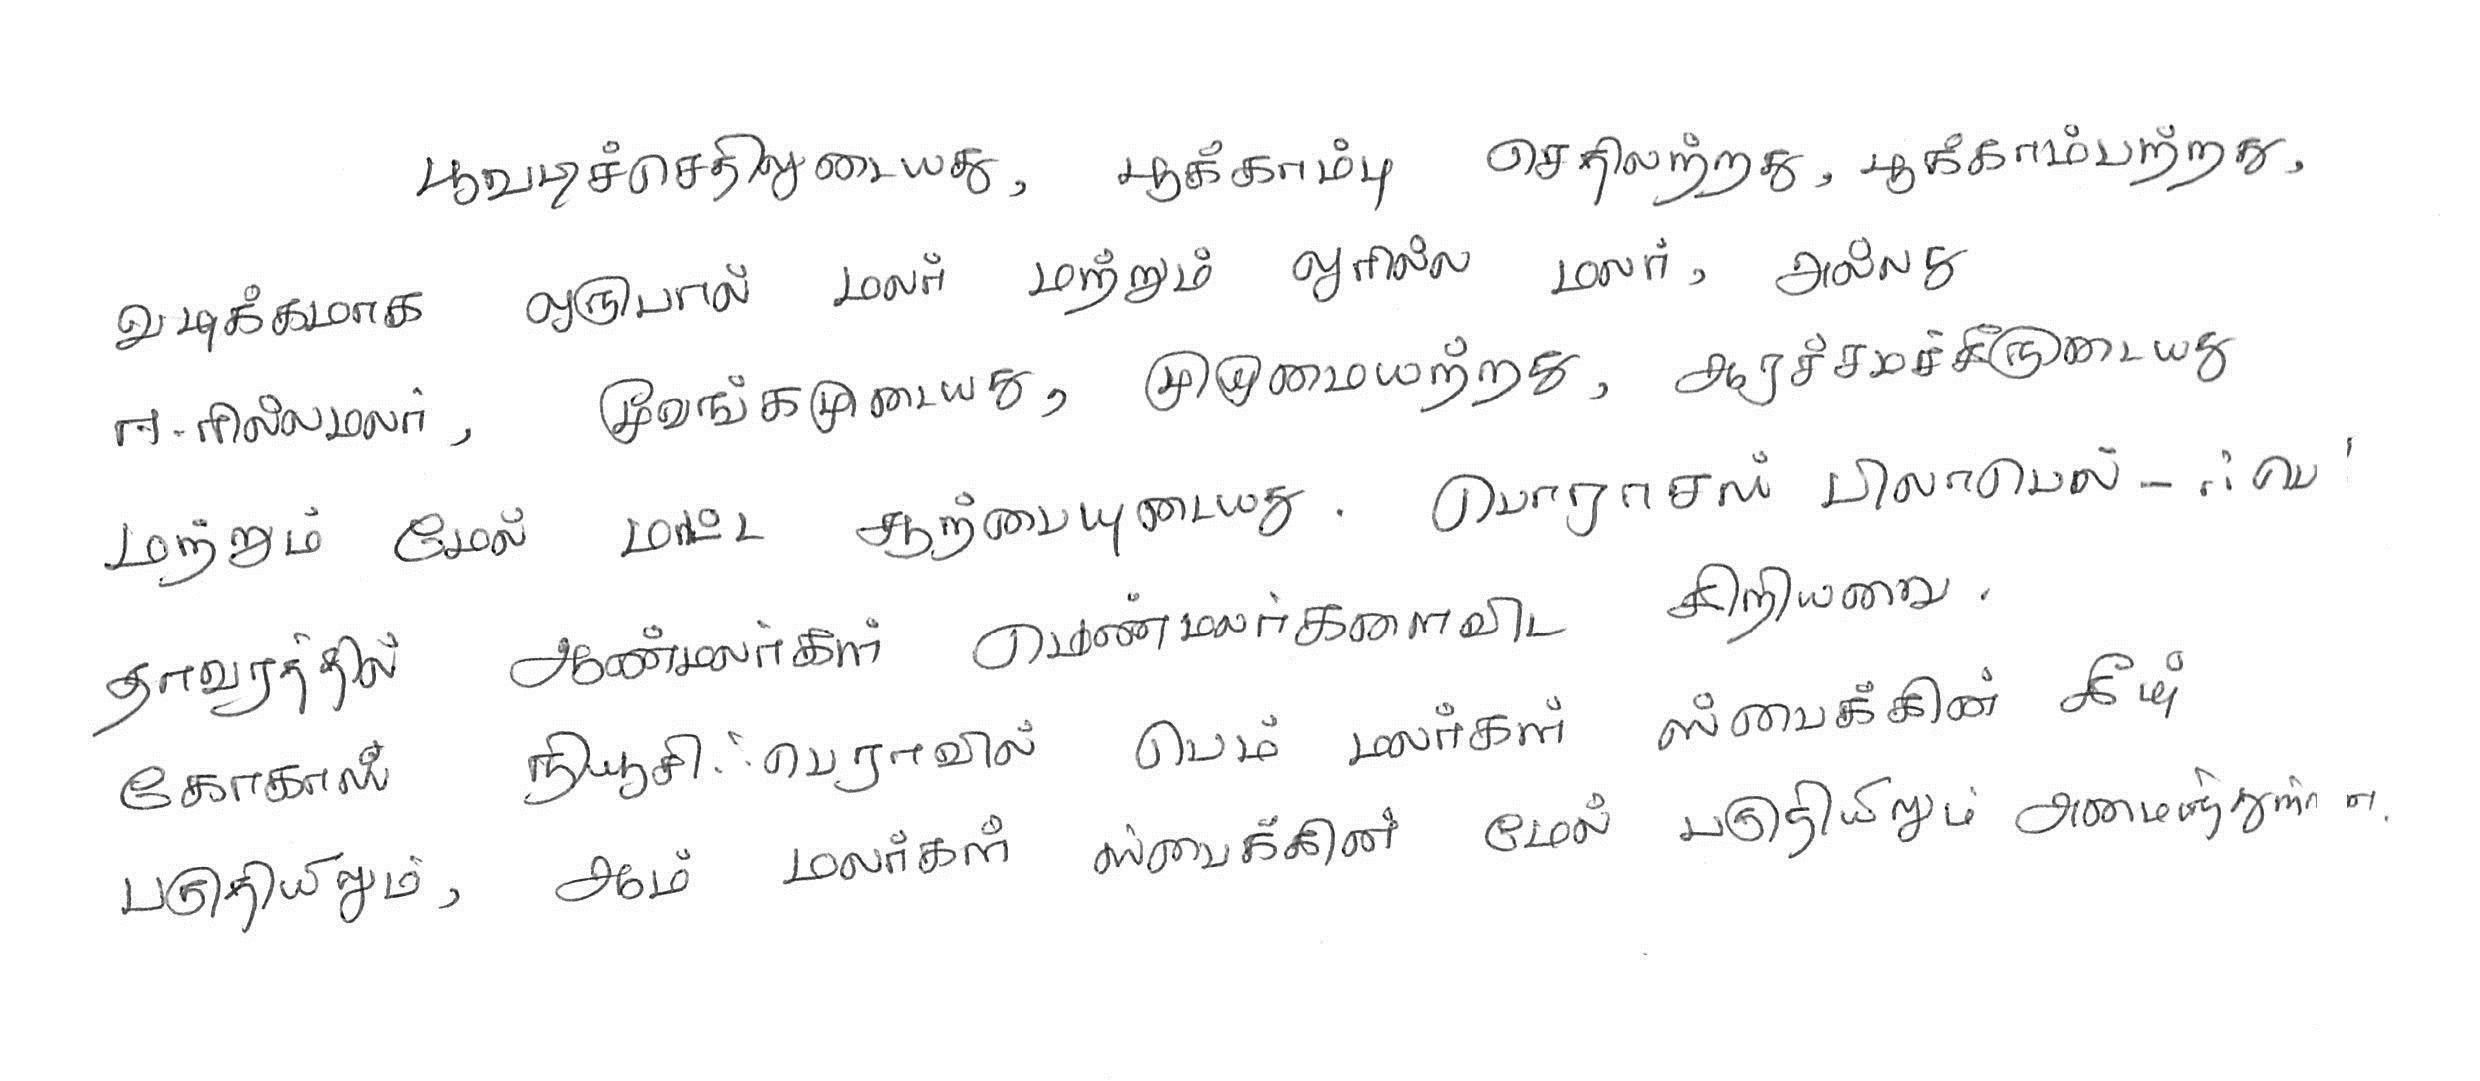 பூவடிச்செதிலுடையது, பூக்காம்பு செதிலற்றது, பூக்காம்பற்றது,
வழக்கமாக ஒருபால் மலர் மற்றும் ஓரில்ல மலர், அல்லது
ஈ-ரில்லமலர், பூவங்கமுடையது, முழுமையற்றது, ஆரச்சமச்சீருடையது
மற்றும் மேல் மட்ட சூற்பையுடையது. பொராசஸ் பிலாபெல்-ஃபெ
தாவரத்தில் ஆண்மலர்கள் பெண்மலர்களைவிட சிறியவை.
கோகாஸ் நியூசிஃபெராவில் பெண் மலர்கள் ஸ்பைக்கின் கீழ்
பகுதியிலும், ஆண் மலர்கள் ஸ்பைக்கின் மேல் பகுதியிலும் அமைந்துள்ளன.